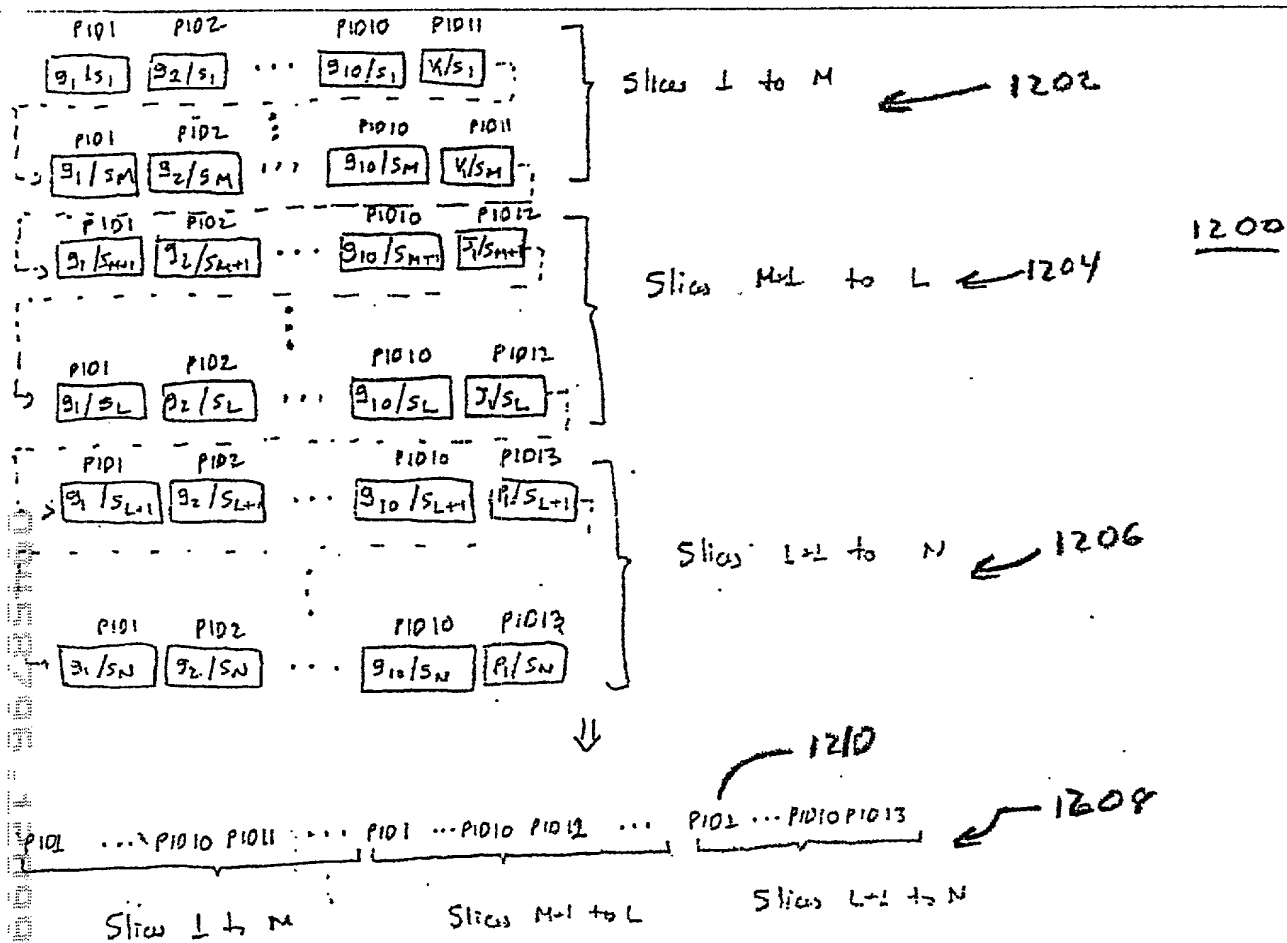 PID1 PID2 PID10 PID11
g1/s1 g2/s1 ... g10/s1 V1/s1
Slices 1 to M
1202
PID1 PID2 PID10 PID11
g1/sM g2/sM ... g10/sM V1/sM
PID1 PID2 PID10 PID12
g1/sM+1 g2/sM+1 ... g10/sM+1 J1/sM+1
1200
Slices M+1 to L
1204
PID1 PID2 PID10 PID12
g1/sL g2/sL ... g10/sL J1/sL
PID1 PID2 PID10 PID13
g1/sL+1 g2/sL+1 ... g10/sL+1 P1/sL+1
Slices L+1 to N
1206
PID1 PID2 PID10 PID13
g1/sN g2/sN ... g10/sN P1/sN
⇓
1210
PID1 ... PID10 PID11 ... PID1 ... PID10 PID12 ... PID1 ... PID10 PID13
1208
Slices 1 to M Slices M+1 to L Slices L+1 to N